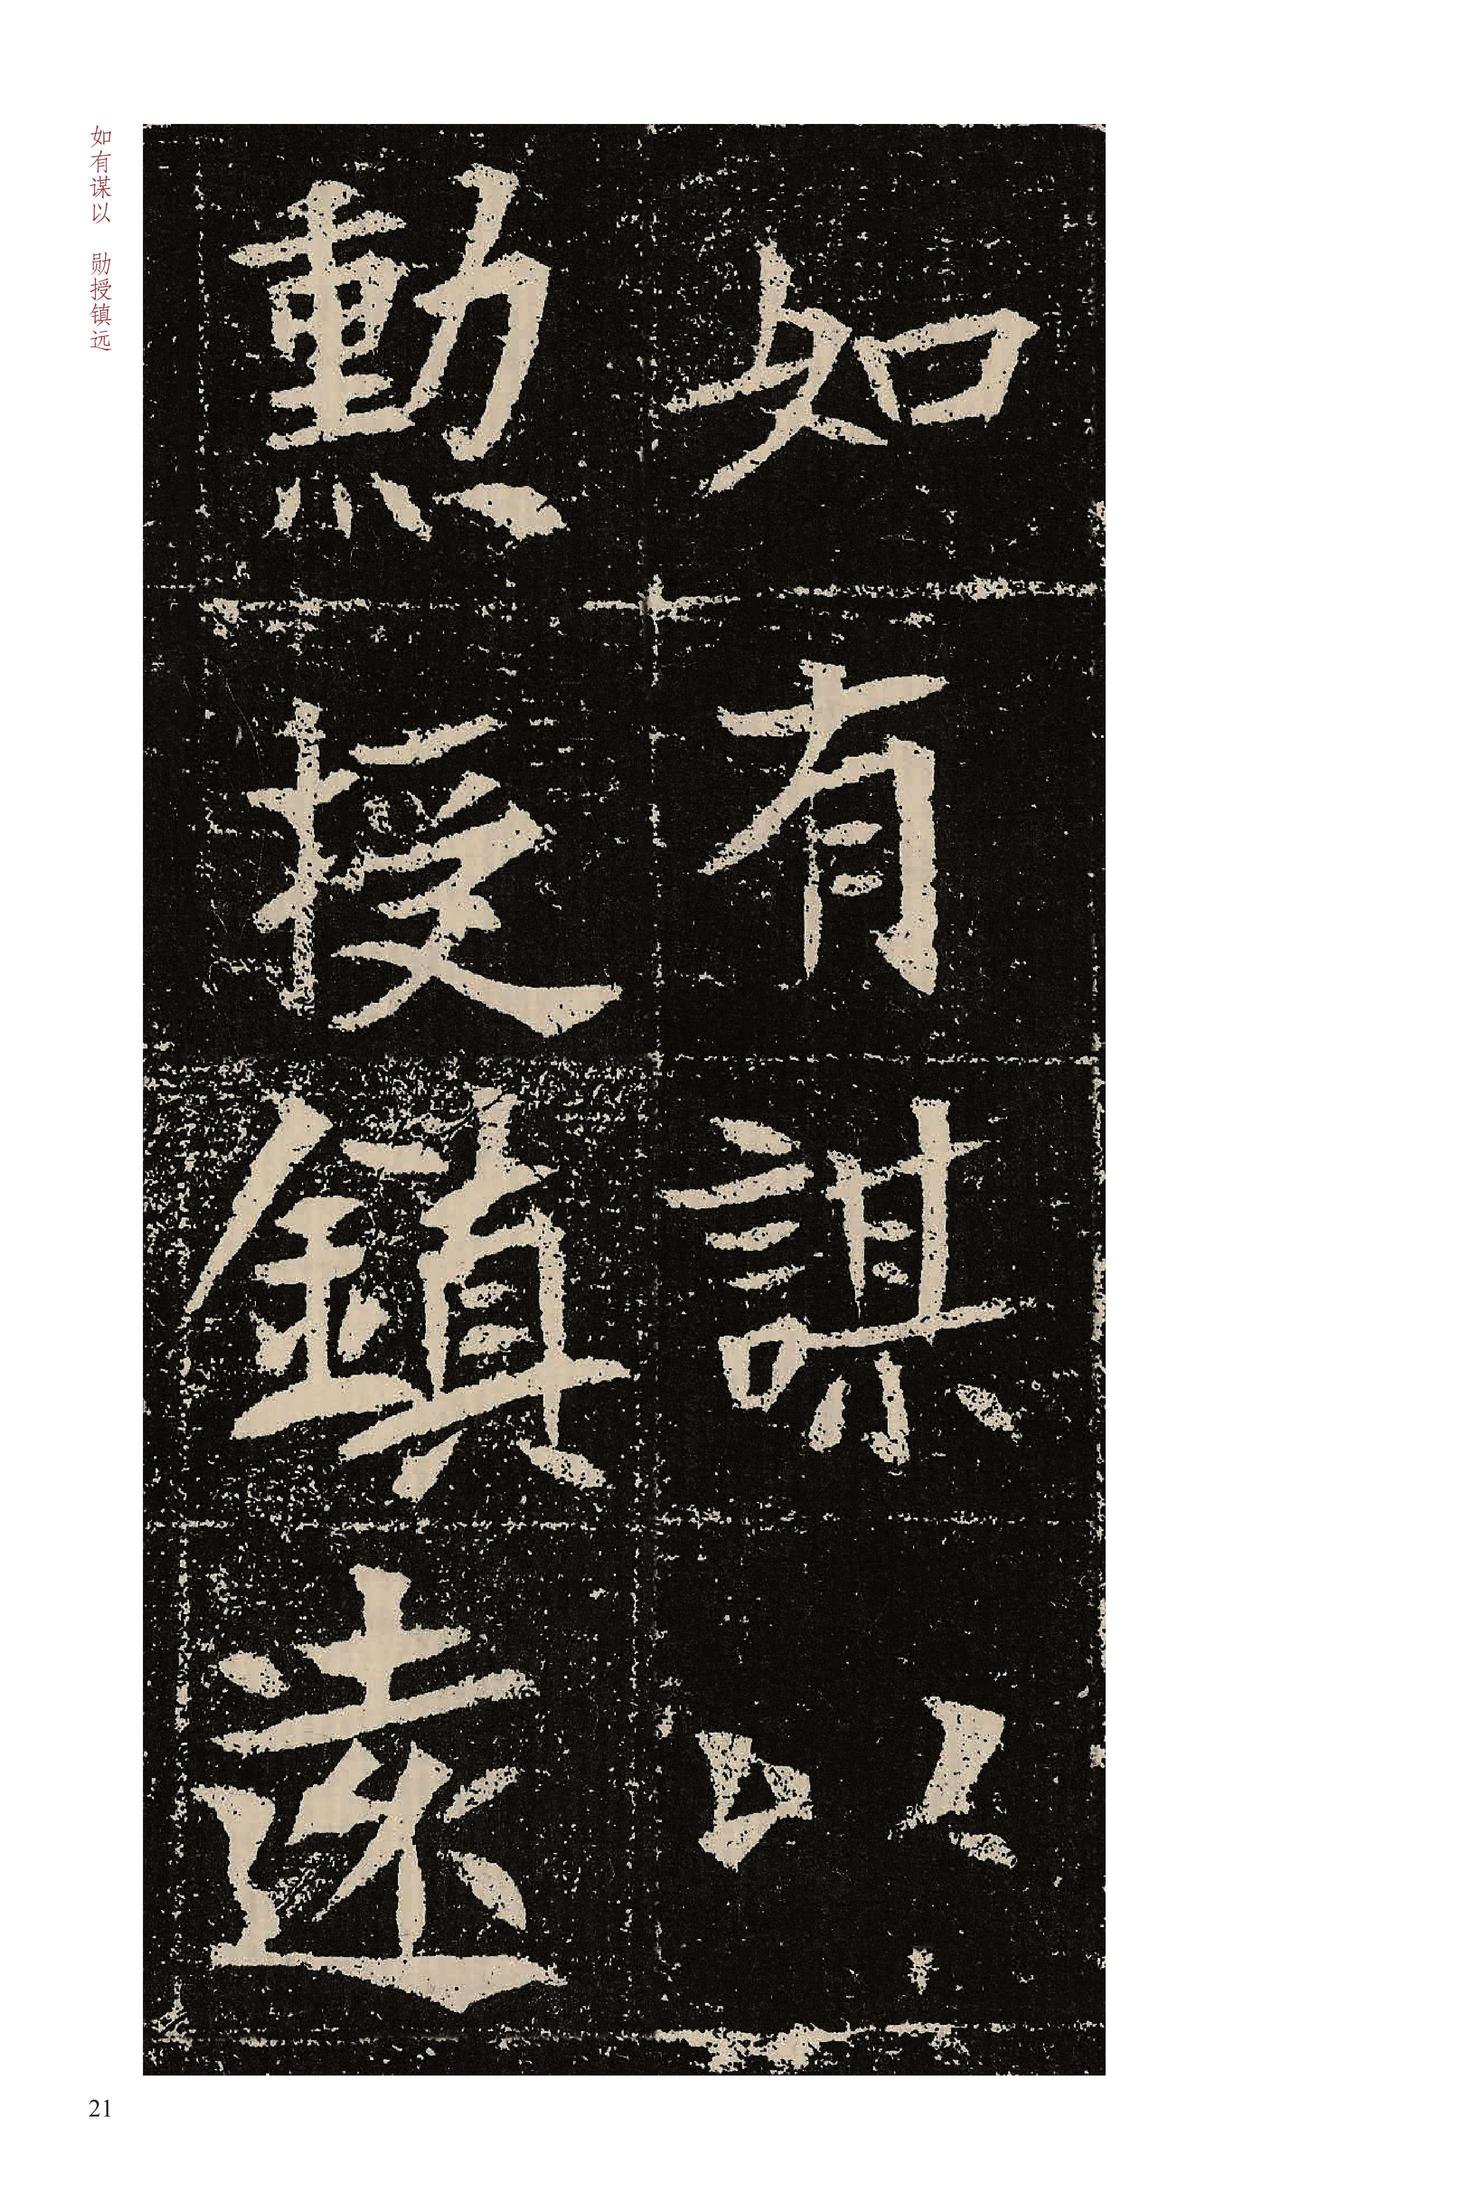 如有謀以
勲授鎮遠
如有谋以 勋授镇远
21